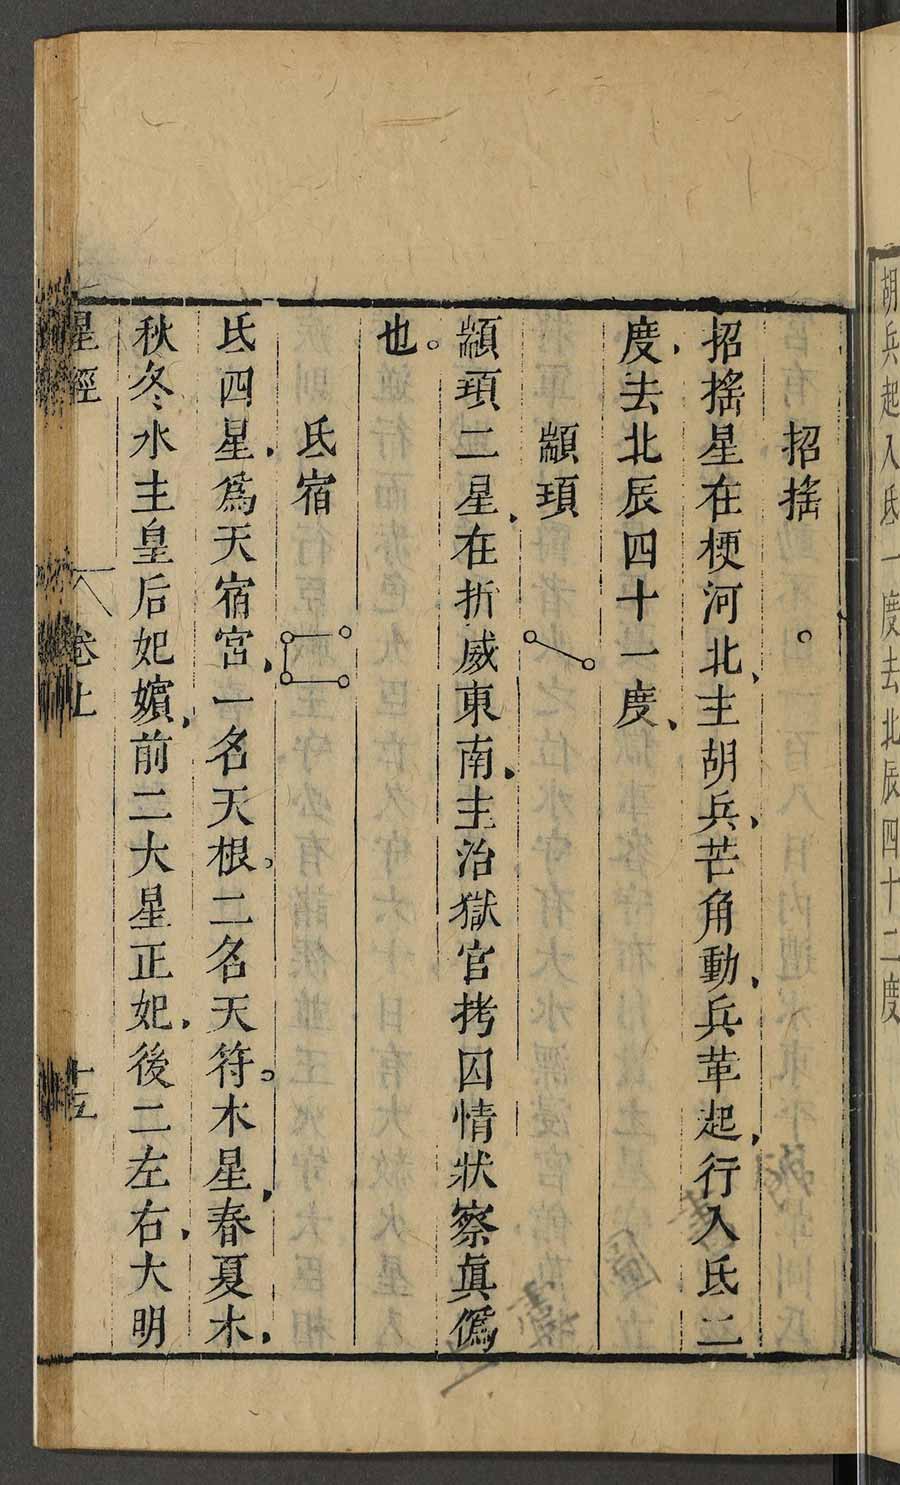 胡兵起入氐一度去北辰四十二度
招搖
招搖星在梗河北、主胡兵、芒角動、兵革起、行入氐二
度、去北辰四十一度、
顓頊
顓頊二星、在折威東南、主治獄官拷囚情狀察眞僞
也。
氐宿
氐四星、爲天宿宮、一名天根。二名天符。木星、春夏木、
秋冬水主皇后妃嬪、前二大星正妃、後二左右、大明
星經
卷上
十五